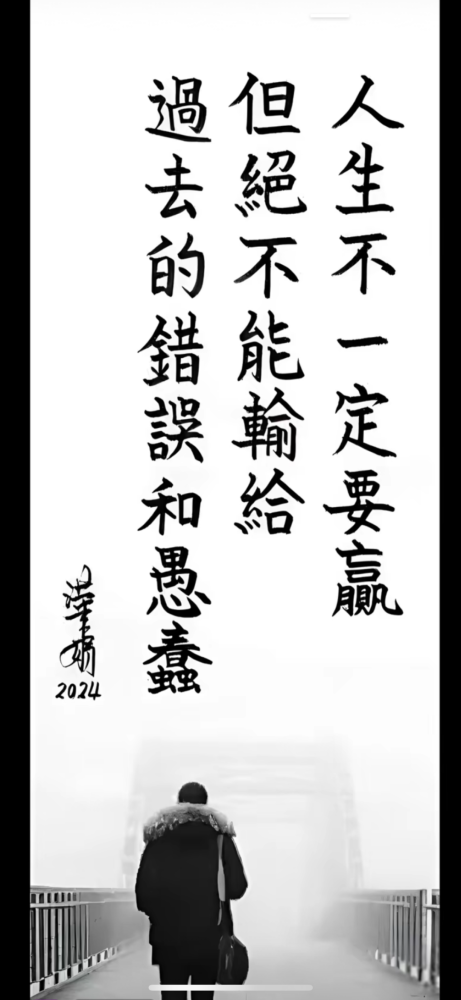 人生不一定要贏
但絕不能輸給
過去的錯誤和愚蠢
2024